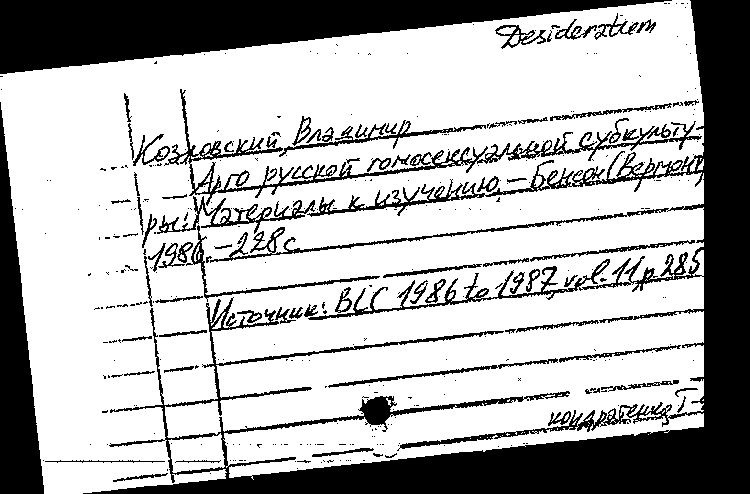 Desideratum
Козловский, Владимир
Арго русской гомосексуальной субкульту-
ры: Материалы к изучению. – Бенсон (Вермонт)
1986. – 228 с
Источник: BLC 1986 to 1987, vol. 11, p 285
кондратенко Т-